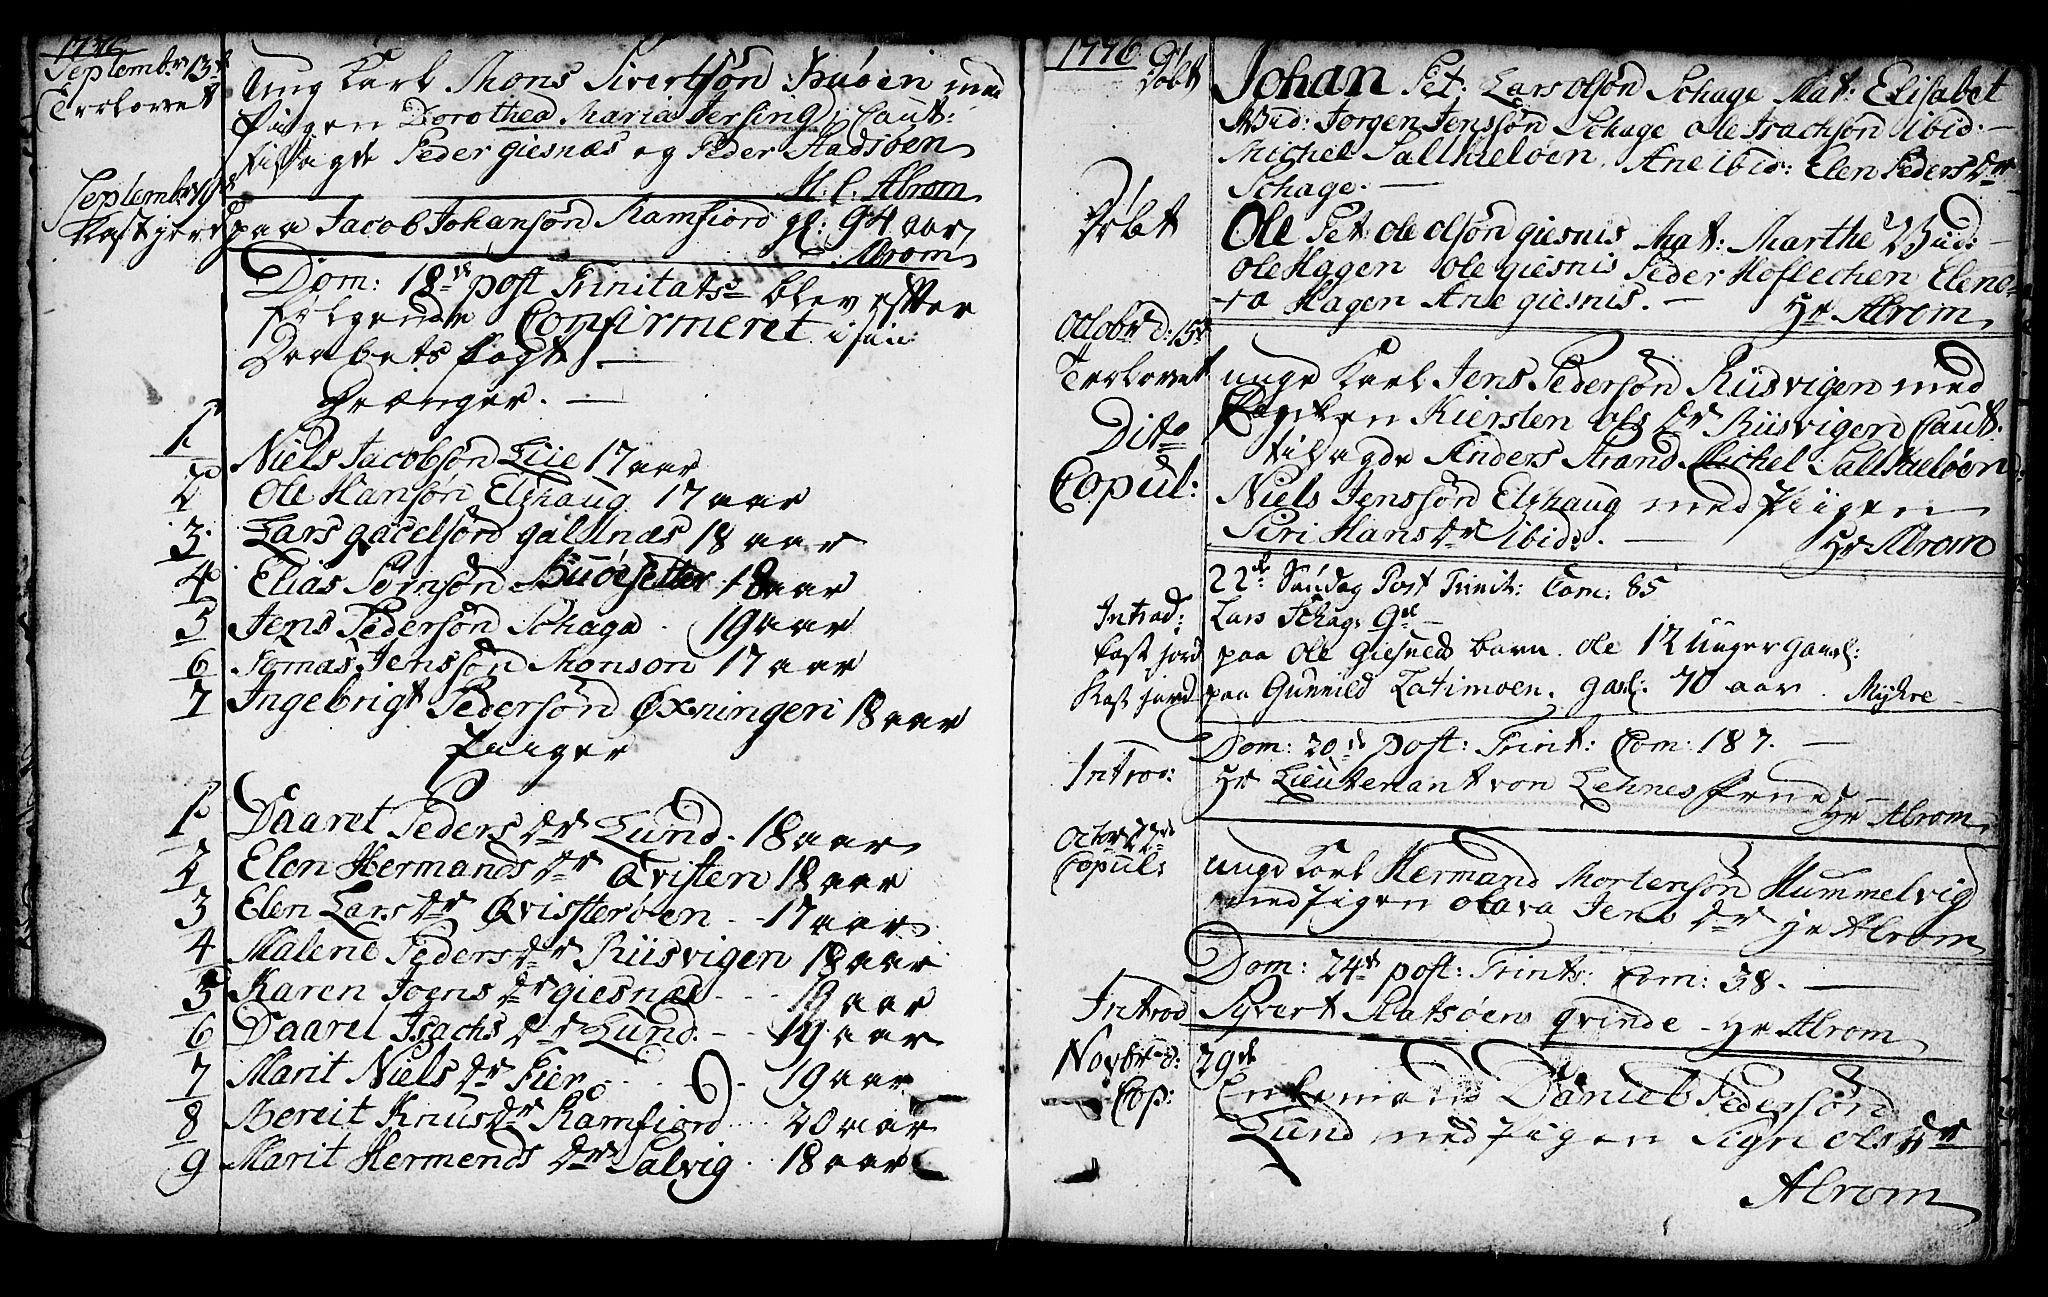 1776
Septembr 13de
Trolovet
Ung Karl Mons Sivertsön Buöen med
Pigen Dorothea Maria Jersing Caut:
tilsagde Peder giesnæs og Peder Stadsöen
H. C. Abrom
Septembr
Kast jord paa Jacob Johansön Ramfiord gl: 94 aar
Abrom
Dom: 18de post Trinitats blev efter
følgende Confirmeret i sin
Daabets Pagt —
Drænger. —
1 Niels Jacobsön Lie 17 aar
2 Ole Hansön Elshaug 17 aar
3 Lars gadelsön galnæs 18 aar
4 Elias Sörnsön Buöesetter 18 aar
5 Jens Pedersön Schaga. 19 aar
6 Tomas Jenssön Monson 17 aar
7 Ingebrigt Pedersön Øxningen 18 aar
Piiger
1 Daaret Peders dr Lund. 18 aar
2 Elen Hermands dr Qvisten 18 aar
3 Elen Lars dr Qvisteröen - - 17 aar
4 Malene Peders dr Riisvigen 18 aar
5 Karen Joens dr giesnæs - - - 19 aar
6 Daarel Isachs dr Lund. - - 19 aar
7 Marit Niels dr Fier - 19 aar
8 Bereit Knus dr Ramfiord 20 aar
9 Marit Hermends dr Salvig. 18 aar
1776
Döbt
Johan Pet: Lars Olsön Schage Mat: Elisabet
Wid: Jorgen Jenssön Schage ole Isachsön ibid: —
Michel Salthielöen. Ane ibid: Elen Peders dr
Schage. —
Döbt
Ole Pet: ole olsön giesnis Mat: Marthe Wid: —
ole Hagen ole giesnis Peder Hoflechen Eleno-
ra Hagen Ane giesnis. — Hr Abrom
Octobr d: 15de
Trolovet unge Karl Jens Pedersön Riisvigen med
Pigen Kiersten ols dr Riisvigen Caut:
tilsagde Anders Strand Michel Salthielöen
Dito
Copul: Niels Jenssön Elshaug med Piigen
Siri Hans dr ibid: — Hr Abrom
22de Søndag Post Trinit: Com: 85
Introd: Lars Schags Qde —
Kast jord paa Ole Giesneds barn ole 12 Uuger gaml:
Kast jord paa Gunnild Latimoen. gaml: 70 aar. Myhre
Dom: 20de post: Trint: Com: 187. —
Introd: Hr Lieutenant von Lehnes Frue
Hr Abrom
Octobr 22de
Copul: unge Karl Hermand Mortensön Hummelvig
med Pigen olava Jens dr Hr Abrom
Dom: 24de post: Trints: Com: 38. —
Introd Syvert Ratsöens qvinde — Hr Abrom
Novbr d: 29de
Cop: Enkemand Daniel Pedersön
Lund med Pigen Sign ols dr
Abrom